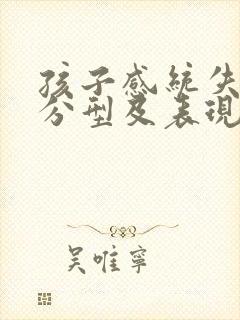 孩子感統失
分型及表現
吳唯寧